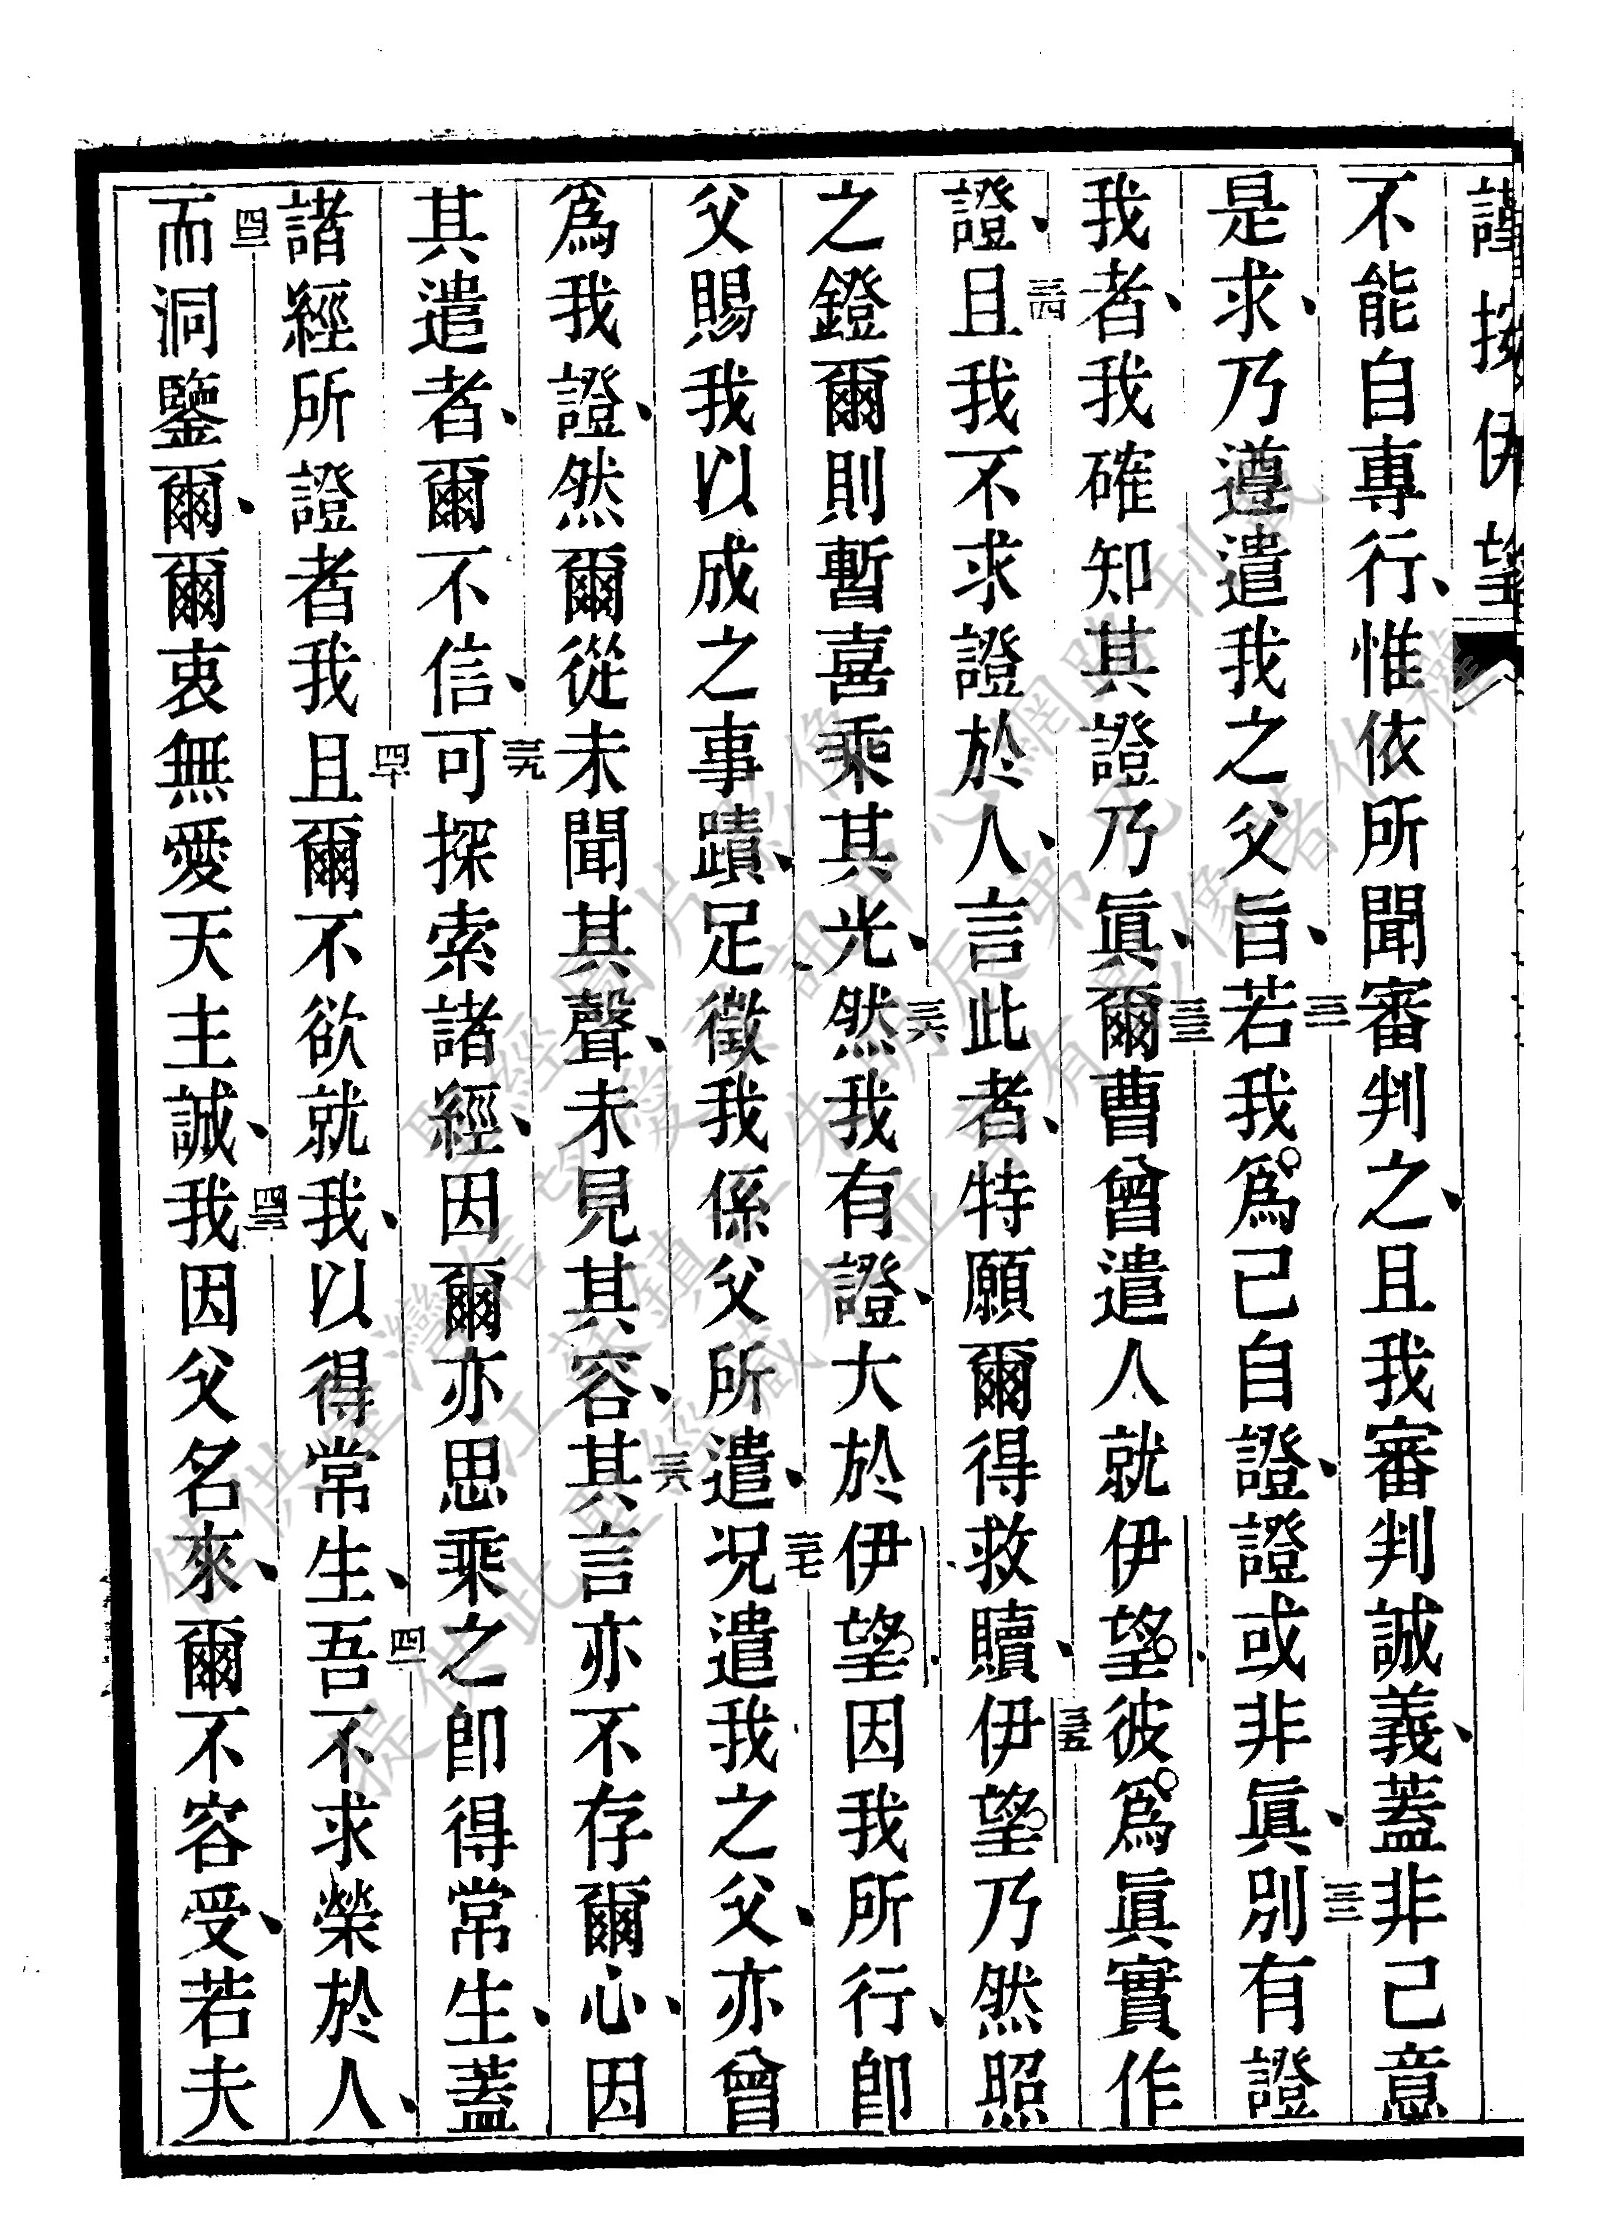 謹按伊望
不能自專行、惟依所聞審判之、且我審判誠義、蓋非己意
是求、乃遵遣我之父旨、三一若我爲己自證、證或非眞、三二別有證
我者、我確知其證乃眞、三三爾曹曾遣人就伊望、彼爲眞實作
證、三四且我不求證於人、言此者、特願爾得救贖、三五伊望乃然照
之鐙、爾則暫喜乘其光、三六然我有證、大於伊望、因我所行、卽
父賜我以成之事蹟、足徵我係父所遣、三七況遣我之父、亦曾
爲我證、然爾從未聞其聲、未見其容、三八其言亦不存爾心、因
其遣者、爾不信、三九可探索諸經、因爾亦思乘之卽得常生、蓋
諸經所證者我、四十且爾不欲就我、以得常生、四一吾不求榮於人、
四二而洞鑒爾、爾衷無愛天主誠、四三我因父名來、爾不容受、若夫